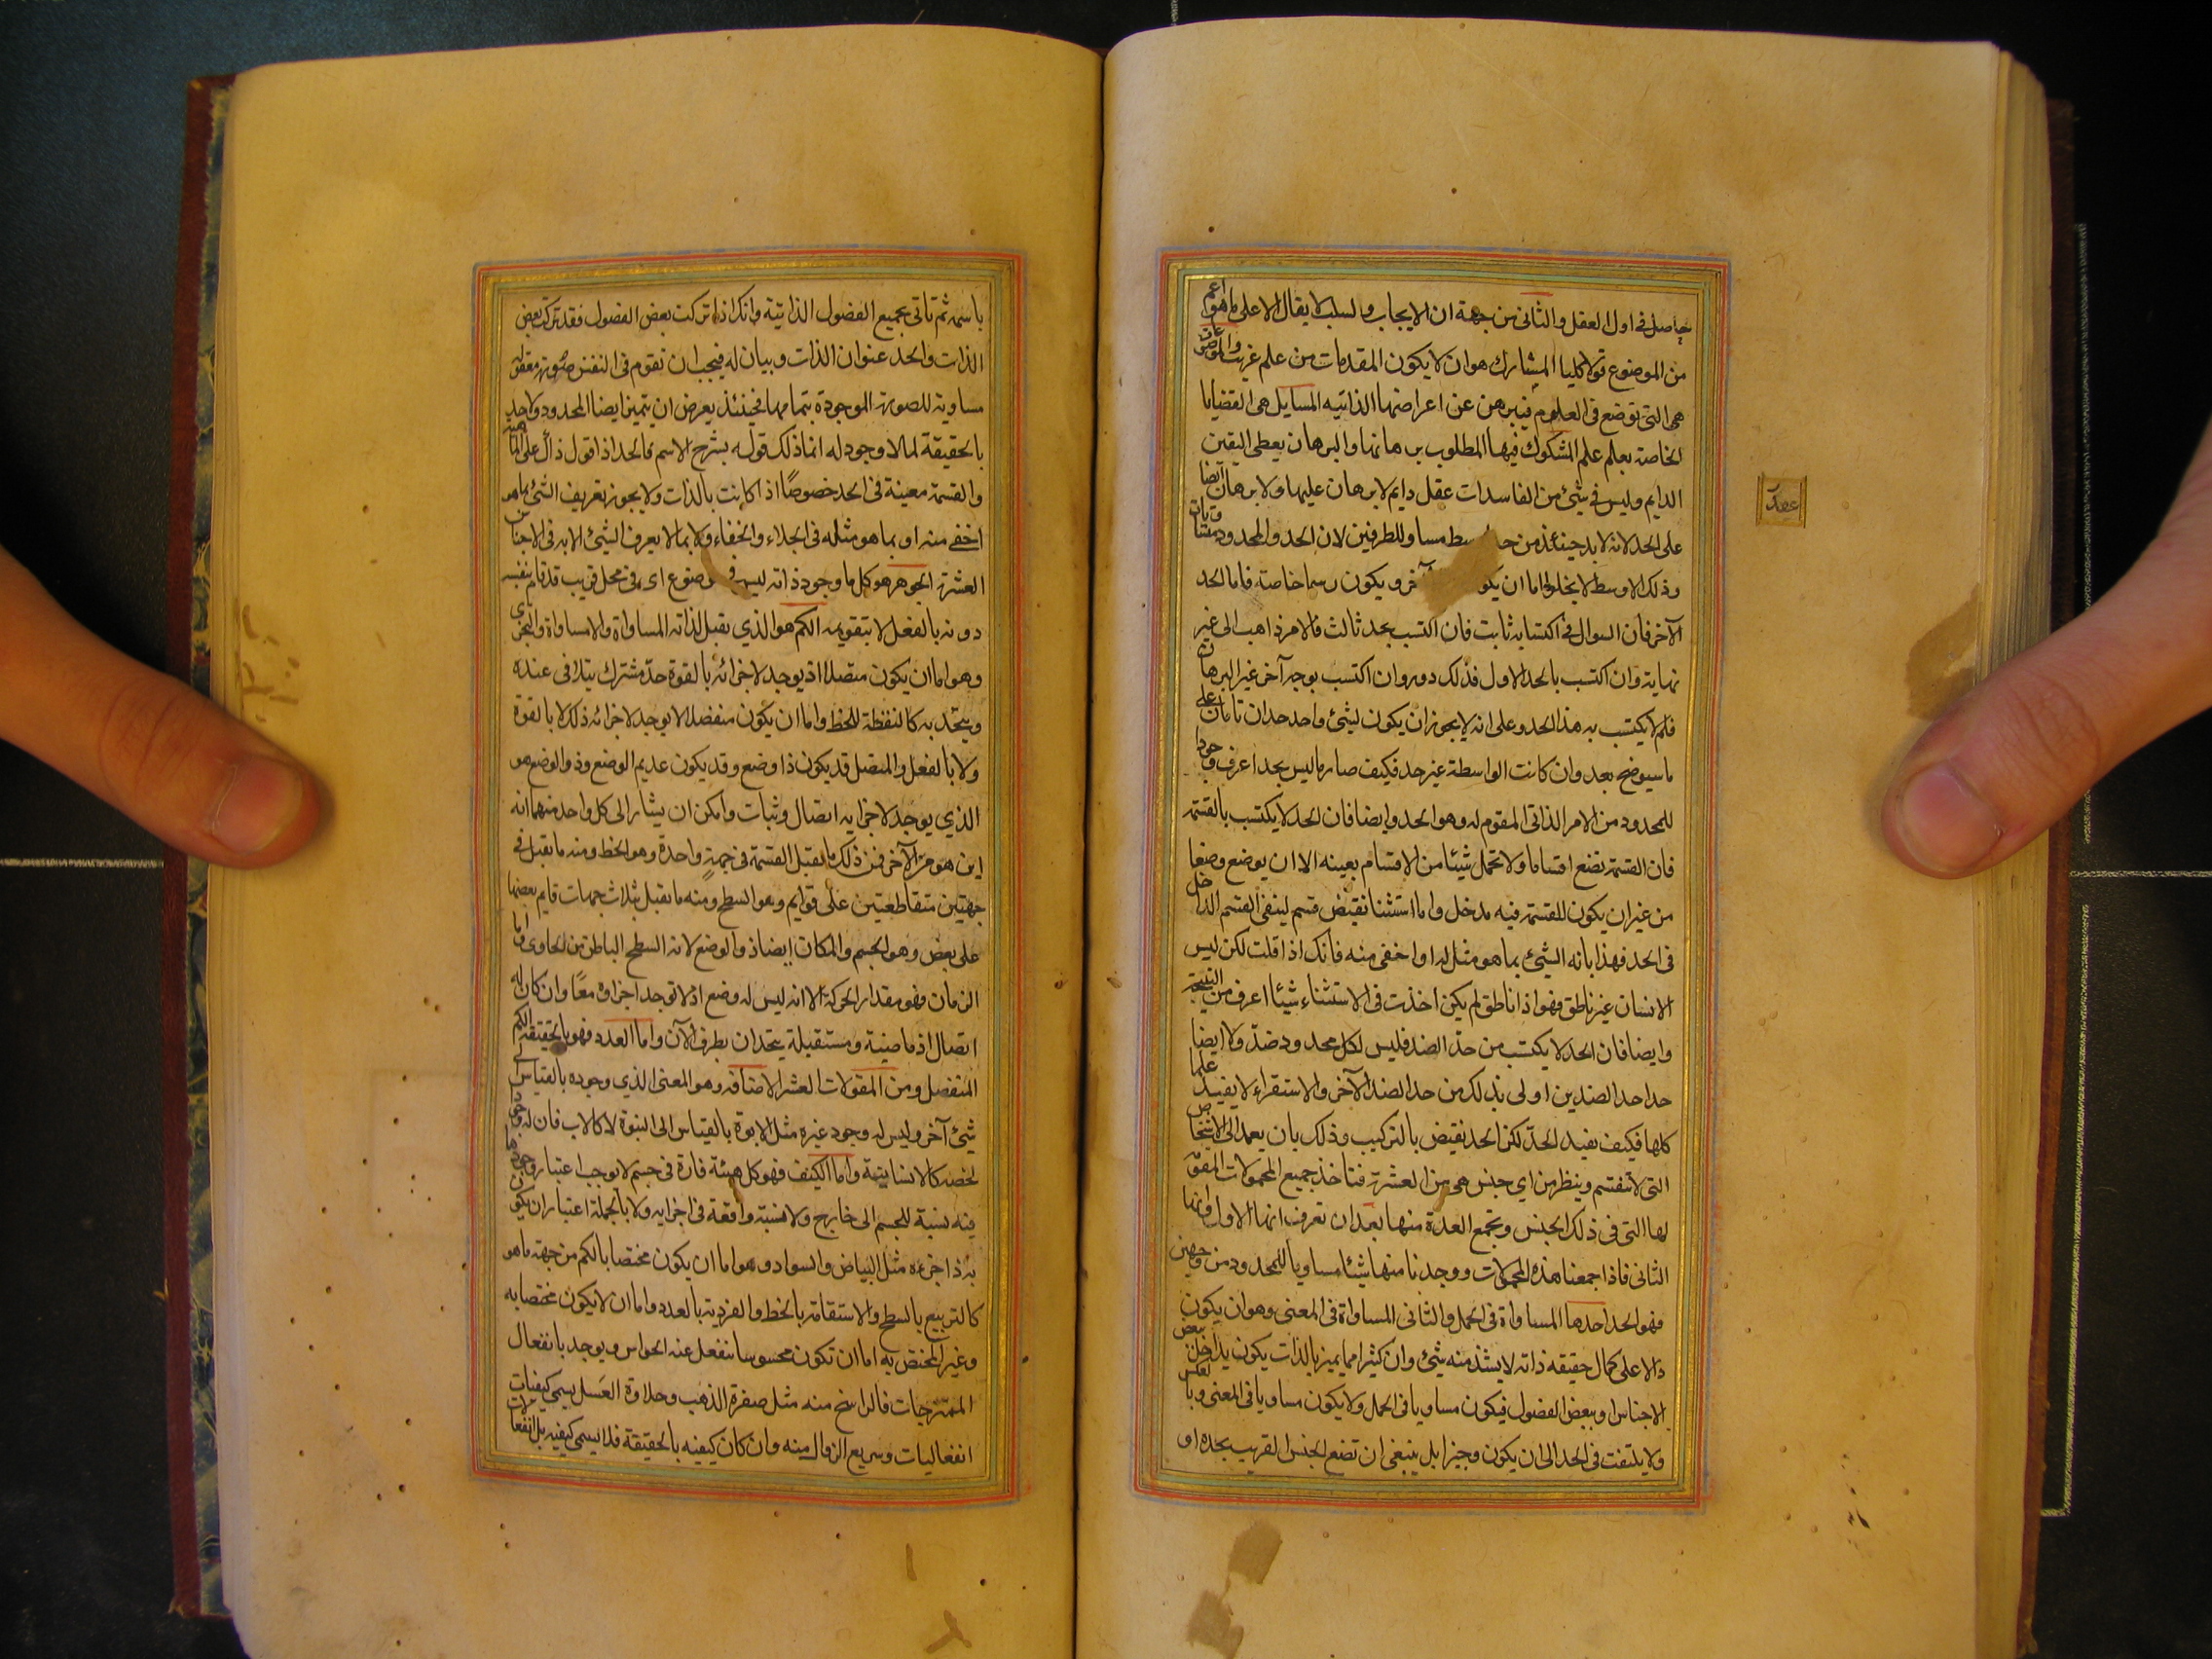 حاصل فى اول العقل والثانى من جهة ان الايجاب والسلب لا يقال الا على ما هو اعم
من الموضوع قولا كليا المشارك هو ان لا يكون المقدمات من علم غريب والموضوعات
هى التى توضع فى العلوم فيبرهن عن اعراضها الذاتيه المسايل هى القضايا
الخاصة بعلم علم المشكوك فيها المطلوب برهانها والبرهان يعطى اليقين
الدايم وليس فى شئ من الفاسدات عقل دايم لا برهان عليها ولا برهان ايضا
على الحد لانه لا بد حينئذ من حد مساو للطرفين لان الحد والمحدود متساويان
وذلك الاوسط لا يخلو اما ان يكو آخر ويكون رسما خاصة فاما الحد
الآخر فان السوال فى اكتسابه ثابت فان اكتسب بحد ثالث فالامر ذاهب الى غير
نهاية وان اكتسب بالحد الاول فذلك دور وان اكتسب بوجه آخر غير البرهان
فلم لا يكتسب به هذا الحد وعلى انه لا يجوز ان يكون لشئ واحد حدان تامان على
ما سيوضح بعد وان كانت الواسطة غير حد فكيف صار ما ليس بحد اعرف وجودا
للمحدود من الامر الذاتى المقوم له وهو الحد وايضا فان الحد لا يكتسب بالقسمة
فان القسمة تضع اقساما ولا تحمل شيئا من الاقسام بعينه الا ان يوضع وضعا
من غير ان يكون للقسمة فيه مدخل واما استثنا نقيض قسم ليبقى القسم الداخل
فى الحد فهذا بانه الشئ بما هو مثل له او اخفى منه فانك اذا قلت لكن ليس
الانسان غير ناطق فهو اذا ناطق لم يكن اخذت فى الاستثناء شيئا اعرف من النتيجة
وايضا فان الحد لا يكتسب من حد الضد فليس لكل محدود ضد ولا ايضا
حد احد الضدين اولى بذلك من حد الضد الآخر والاستقراء لا يفيد علما
كليا فكيف يفيد الحد لكن الحد يقتض بالتركيب وذلك بان يعمد الى الاشخاص
التى لا تنقسم وينظر من اي جنس هى من العشرة فتاخذ جميع المحمولات المقومة
لها التى فى ذلك الجنس ويجمع العدة منها بعد ان تعرف انها الاول وانها
الثانى فاذا جمعنا هذه المحمولات ووجدنا منها شيئا مساويا للمحدود من وجهين
فهو الحد احدها المساواة فى الحمل والثانى المساواة فى المعنى وهو ان يكون
دالا على كمال حقيقه ذاته لا يشذ منه شئ وان كثيرا مما يميز بالذات يكون يداخل بعض
الاجناس او ببعض الفصول فيكون مساويا فى الحمل ولا يكون مساويا فى المعنى وبالعكس
ولا يلتفت فى الحد الى ان يكون وجيزا بل ينبغى ان تضع الجنس القريب بحده او
باسمه ثم تاتى بجميع الفصول الذاتية وانك اذا تركت بعض الفصول فقد تركت بعض
الذات والحد عنوان الذات وبيان له فيجب ان تقوم فى النفس صورة معقوله
مساوية للصورة الموجودة بتمامها فحينئذ يعرض ان يتميز ايضا المحدود ولا حد
بالحقيقة لما لا وجود له انما ذلك قول يشرح الاسم فالحد اذا قول دال على الماهية
والقسمة معينة فى الحد خصوصا اذا كانت بالذات ولا يجوز تعريف الشئ بما هو
اخفى منه او بما هو مثله فى الجلاء والخفاء ولا بما لا يعرف الشئ الا به فى الاجناس
العشرة الجوهر هو كل ما وجود ذاته ليس فى موضوع اى فى محل قريب قد قام بنفسه
دونه بالفعل لا بتقويمه الكم هو الذي يقبل لذاته المساواة واللامساواة والتجزى
وهو اما ان يكون متصلا اذ يوجد لاجزائه بالقوة حد مشترك يتلاقى عنده
ويتحد به كالنقطة للخط واما ان يكون منفصلا لا يوجد لاجزائه ذلك لا بالقوة
ولا بالفعل والمتصل قد يكون ذا وضع وقد يكون عديم الوضع وذو الوضع هو
الذي يوجد لاجزايه اتصال وثبات وامكن ان يشار الى كل واحد منهما انه
اين هو من الآخر فمن ذلك ما يقبل القسمة فى جهة واحدة وهو الخط ومنه ما يقبل فى
جهتين متقاطعتين على قوايم وهو السطح ومنه ما يقبل بثلاث جهات قايم بعضها
على بعض وهو الجسم والمكان ايضا ذو الوضع لانه السطح الباطن من الحاوى واما
الزمان فهو مقدار الحركة الا انه ليس له وضع اذ لا توجد اجزاوه معا وان كان له
اتصال اذ ماضية ومستقبلة يتحدان بطرف الآن واما العدد فهو بالحقيقة الكم
المنفصل ومن المقولات العشر الاضافه وهو المعنى الذي وجوده بالقياس الى
شئ آخر وليس له وجود غيره مثل الابوة بالقياس الى البنوة لا كالاب فان له وجودا
يخصه كالانسانية واما الكيف فهو كل هيئة قارة فى جسم لا يوجب اعتبار وجودها
فيه نسبة للجسم الى خارج ولا نسبة واقعة فى اجزايه ولا بالجملة اعتبار ان يكون
به ذا جزء مثل البياض والسواد وهو اما ان يكون مختصا بالكم من جهة ما هو
كالتربيع بالسطح والاستقامة بالخط والفردية بالعدد واما ان لا يكون مختصا به
وغير المختص به اما ان تكون محسوسا ينفعل عنه الحواس ويوجد بانفعال
الممتزجات فالراسخ منه مثل صفرة الذهب وحلاوة العسل يسمى كيفيات
انفعاليات وسريع الزوال منه وان كان كيفيه بالحقيقة فلا يسمى كيفيه بل انفعالات